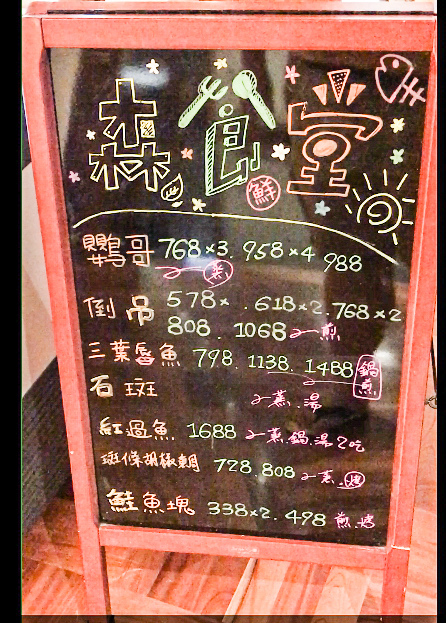 森食堂
鮮
鸚哥 768×3. 958×4 988
蒸
倒吊 578× .618×2.768×2
808. 1068 煎
三葉唇魚 798. 1138. 1488 鍋煎
石斑 蒸.湯
紅過魚 1688 蒸.鍋.湯2吃
斑條胡椒鯛 728.808 蒸.烤
鮭魚塊 338×2. 498 煎.烤